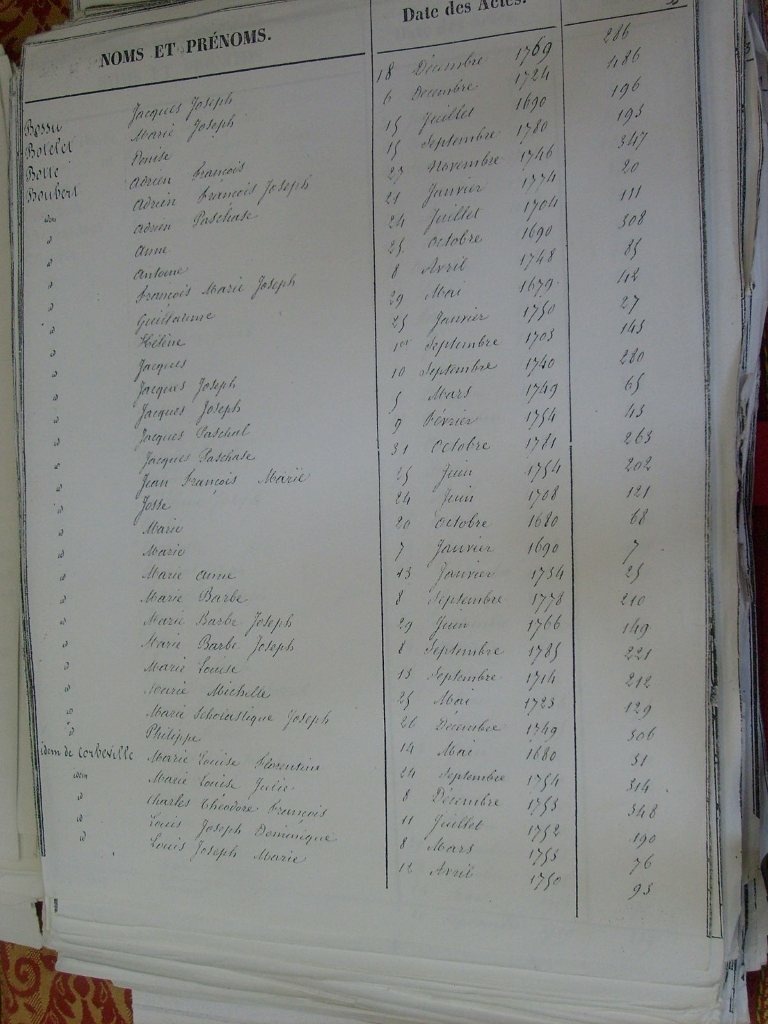 NOMS ET PRÉNOMS. Date des Actes.
Bessu Jacques Joseph 18 Décembre 1769 286
Botelet Marie Joseph 6 Décembre 1724 486
Botté Louise 15 Juillet 1690 196
Boubert Adrien François 15 Septembre 1780 193
idem Adrien François Joseph 27 Novembre 1746 347
d Adrien Paschase 21 Janvier 1774 20
d Anne 24 Juillet 1704 111
d Antoine 25 Octobre 1690 308
d François Marie Joseph 8 Avril 1748 85
d Guillaume 29 Mai 1679 42
d Hélène 25 Janvier 1750 27
d Jacques 1er Septembre 1703 145
d Jacques Joseph 10 Septembre 1740 280
d Jacques Joseph 5 Mars 1749 65
d Jacques Paschal 9 Février 1754 43
d Jacques Paschase 31 Octobre 1781 263
d Jean François Marie 25 Juin 1754 202
d Josse 24 Juin 1708 121
d Marie 20 Octobre 1680 68
d Marie 7 Janvier 1690 7
d Marie Anne 13 Janvier 1734 25
d Marie Barbe 8 Septembre 1778 210
d Marie Barbe Joseph 29 Juin 1766 149
d Marie Barbe Joseph 8 Septembre 1785 221
d Marie Louise 13 Septembre 1714 212
d Marie Michelle 25 Mai 1723 129
d Marie Scholastique Joseph 26 Décembre 1749 306
d Philippe 14 Mai 1680 31
idem de Corbeville Marie Louise Florentine 24 Septembre 1754 314
idem Marie Louise Julie 8 Décembre 1753 348
d Charles Théodore François 11 Juillet 1752 190
d Louis Joseph Dominique 8 Mars 1753 76
d Louis Joseph Marie 18 Avril 1750 93